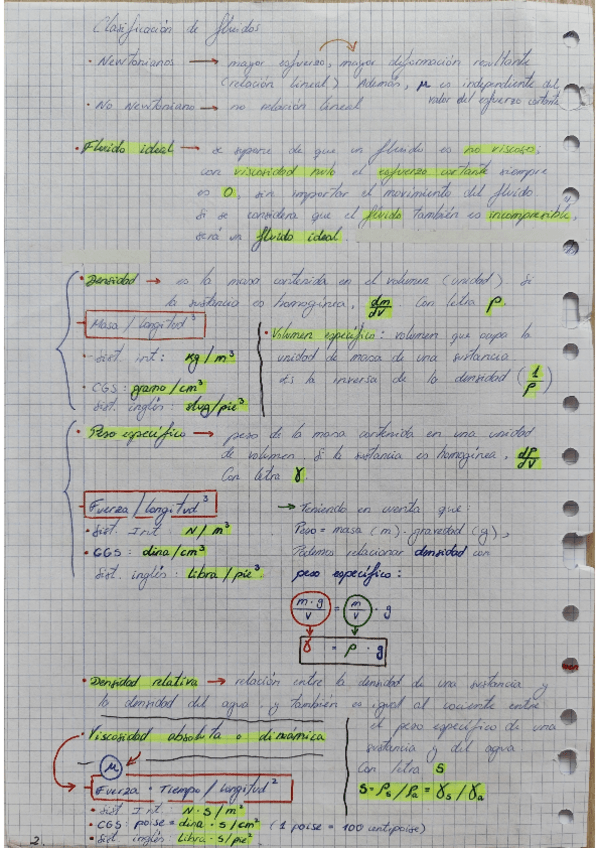 Clasificación de fluidos
• Newtonianos → mayor esfuerzo, mayor deformación resultante
(relación lineal) Además, μ es independiente del
valor del esfuerzo cortante
• No Newtoniano → no relación lineal
• Fluido ideal → se supone de que un fluido es no viscoso;
con viscosidad nula el esfuerzo cortante siempre
es 0, sin importar el movimiento del fluido
Si se considera que el fluido también es incompresible,
será un fluido ideal.
• Densidad → es la masa contenida en el volumen (unidad). Si
la sustancia es homogénea, dm/dV Con letra ρ.
Masa / longitud³
- Sist. int: kg/m³
• CGS: gramo/cm³
Sist. inglés: slug/pie³
• Volumen específico: volumen que ocupa la
unidad de masa de una sustancia
es la inversa de la densidad (1/ρ)
• Peso específico → peso de la masa contenida en una unidad
de volumen. Si la sustancia es homogénea, dP/dV
Con letra γ.
Fuerza / longitud³
• Sist. Int N/m³
• CGS: dina/cm³
Sist. inglés: libra/pie³.
→ Teniendo en cuenta que:
Peso = masa (m) · gravedad (g),
Podemos relacionar densidad con
peso específico:
m·g/V = m/V · g
γ = ρ · g
• Densidad relativa → relación entre la densidad de una sustancia y
la densidad del agua y también es igual al cociente entre
el peso específico de una
sustancia y del agua
Con letra S
S = ρs/ρa = γs/γa
• Viscosidad absoluta o dinámica
μ
Fuerza · Tiempo / longitud²
• Sist Int N·s/m²
• CGS: poise = dina·s/cm² (1 poise = 100 centipoise)
• Sist. inglés: libra·s/pie².
2.